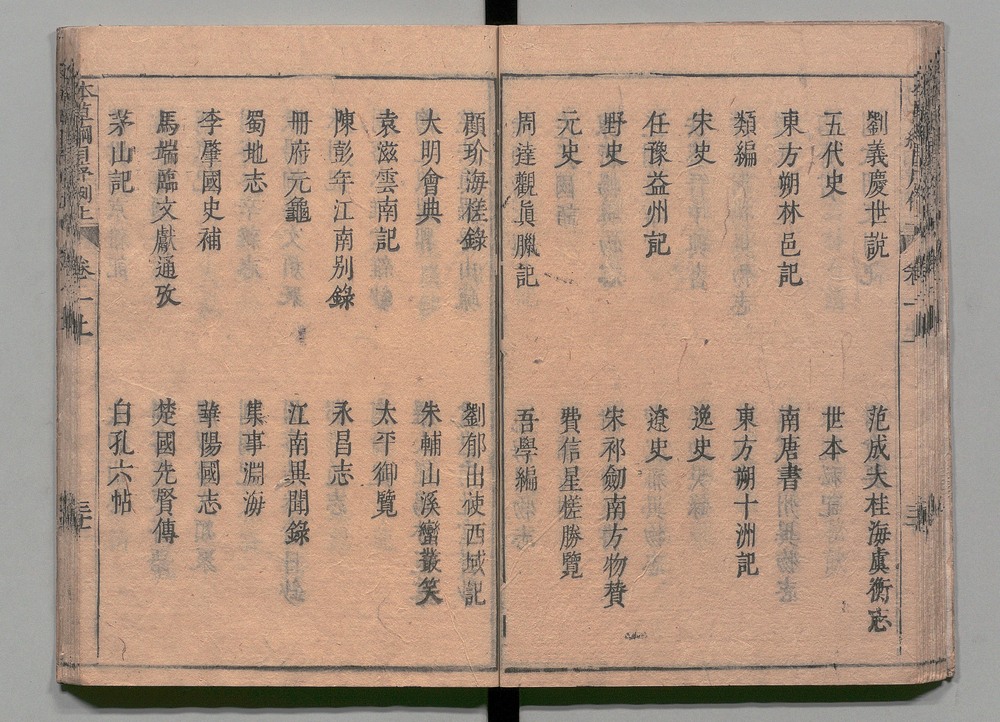 劉義慶世説　范成大桂海虞衡志
五代史　世本
東方朔林邑記　南唐書
類編　東方朔十洲記
宋史　逸史
任豫益州記　遼史
野史　宋祁劒南方物賛
元史　費信星槎勝覽
周達觀眞臘記　吾學編
顧玠海槎録　劉郁出使西域記
大明會典　朱輔山溪蠻叢笑
袁滋雲南記　太平御覽
陳彭年江南别錄　永昌志
冊府元龜　江南異聞錄
蜀地志　集事淵海
李肇國史補　華陽國志
馬端臨文獻通攷　楚國先賢傳
茅山記　白孔六帖
本草綱目序例上　卷一上